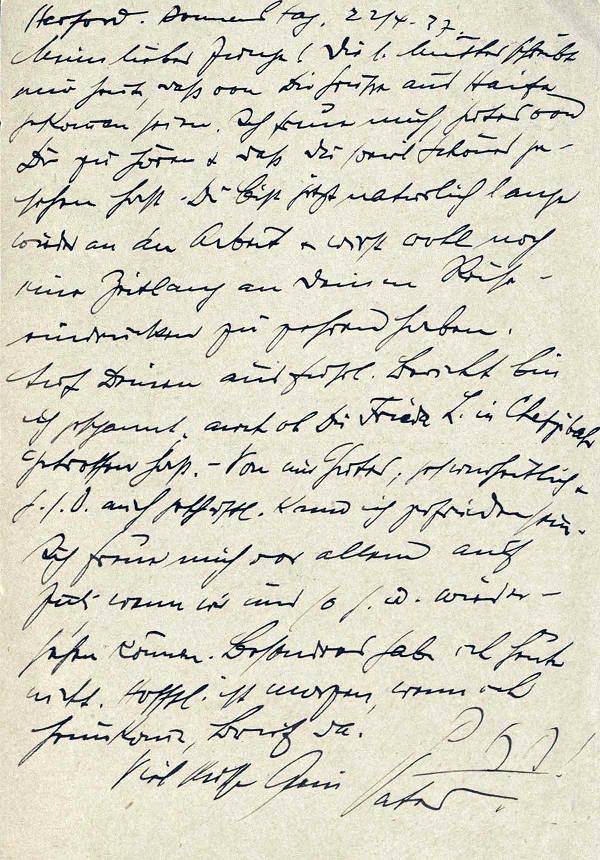 Herford. Donnerstag, 22/4. 37.
Mein lieber Junge! Die l. Mutter schreibt
mir heute, daß von Dir Grüße aus Haifa
gekommen seien. Ich freue mich, Gutes von
Dir zu hören & daß Du soviel Schönes ge-
sehen hast. Du bist jetzt natürlich lange
wieder an der Arbeit & wirst wohl noch
eine Zeitlang an Deinen Reise-
eindrücken zu zehren haben.
Auf Deinen ausführl. Bericht bin
ich gespannt, auch ob Du Frieda L. in Chefzibah
getroffen hast. – Von mir Gutes, gesundheitlich &
auch geschäftl. kann ich zufrieden sein.
Ich freue mich vor allem auf
wenn wir uns so G. w. wieder-
sehen können. Besonderes habe ich heute
nicht. Hofftl. ist morgen, wenn ich
heimkomme, Brief da.
Viel Küsse Dein Vater